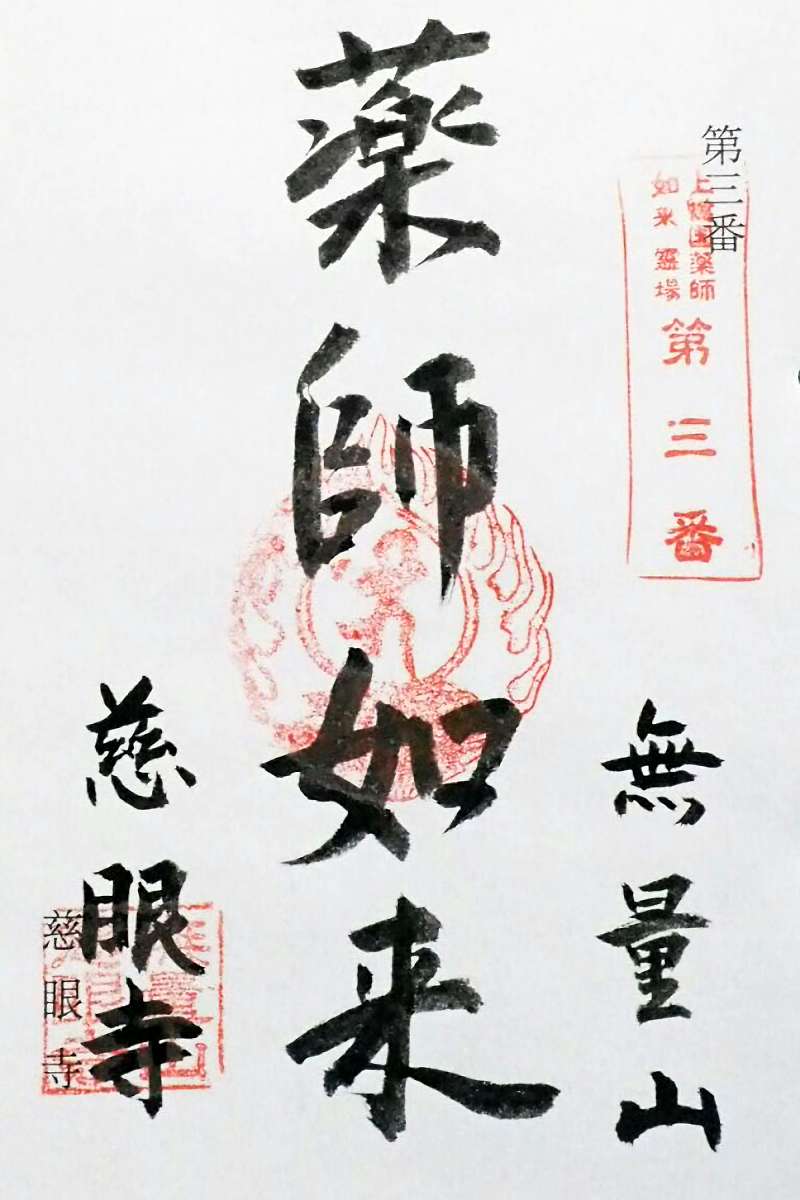 第三番
上総国薬師
如来霊場
第三番
無量山
薬師如来
慈眼寺
慈眼寺